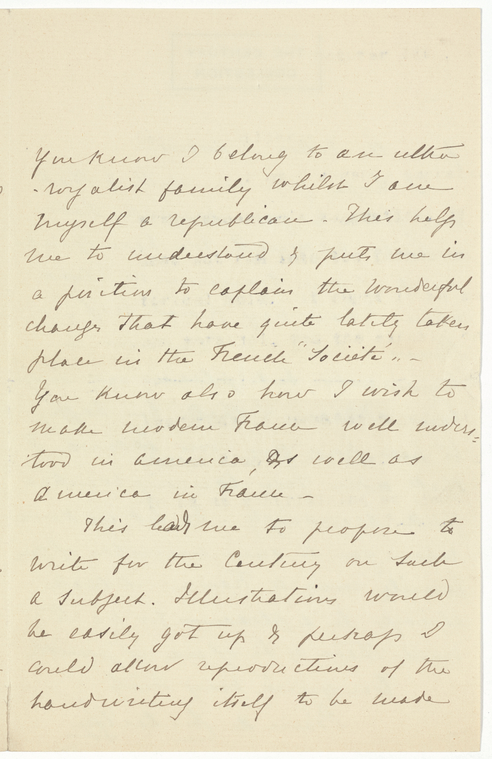 You know I belong to an ultra
-royalist family whilst I am
myself a republican. This helps
me to understand & puts me in
a position to explain the wonderful
changes that have quite lately taken
place in the French "Société". -
You know also how I wish to
make modern France well unders=
tood in america, as well as
America in France -
This leads me to propose to
write for the Century on such
a subject. Illustrations would
be easily got up & perhaps I
could allow reproductions of the
handwriting itself to be made